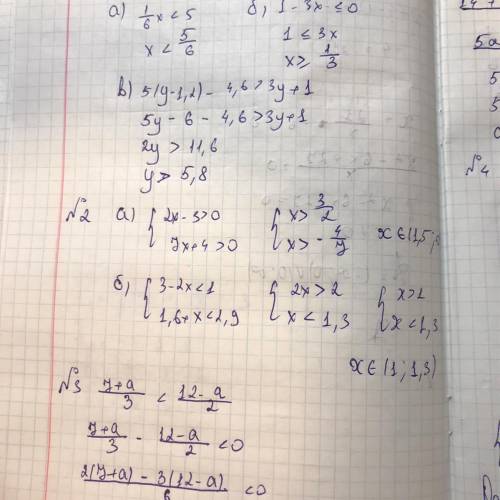 а) 1/6 x < 5    б) 1 - 3x ≤ 0
x < 5/6    1 ≤ 3x
x ≥ 1/3
в) 5(y-1,2) - 4,6 > 3y+1
5y - 6 - 4,6 > 3y+1
2y > 11,6
y > 5,8
№2 а) { 2x - 3 > 0    { x > 3/2
7x + 4 > 0    x > - 4/7    x ∈ (1,5;
б) { 3 - 2x < 1    { 2x > 2    { x > 1
1,6 + x < 2,9    x < 1,3    x < 1,3
x ∈ (1; 1,3)
№3 (7+a)/3 < (12-a)/2
(7+a)/3 - (12-a)/2 < 0
(2(7+a) - 3(12-a))/6 < 0
5a
5
5
№4